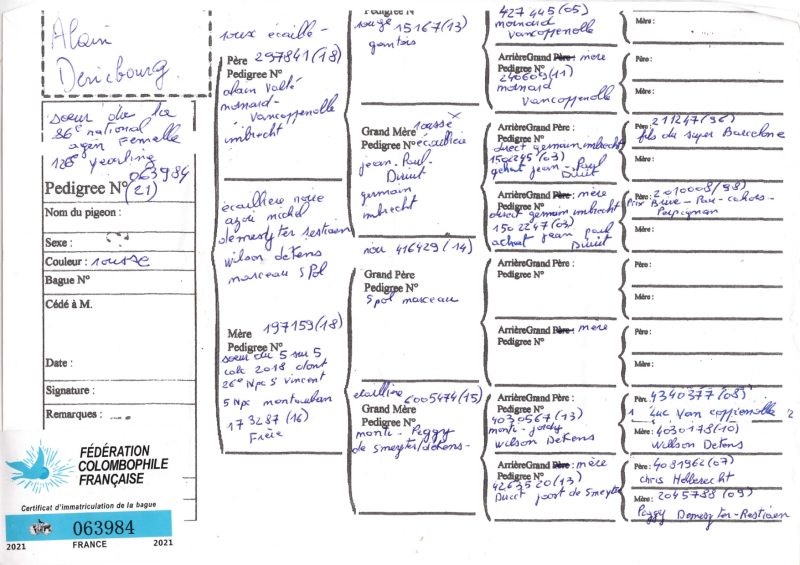 Alain
Dericbourg
soeur de la
86e national
agen Femelle
126e yearling
063984
Pedigree N° (21)
Nom du pigeon :
Sexe :
Couleur : rousse
Bague N°
Cédé à M.
Date :
Signature :
Remarques :
FÉDÉRATION
COLOMBOPHILE
FRANÇAISE
Certificat d'immatriculation de la bague
063984
2021 FRANCE 2021
roux écaillé
Père 297841 (18)
Pedigree N°
alain
moinard-
vancoppenolle
imbrecht
écaillée noire
azoi michel
demesyter restiaen
wilson detens
marceau spol
Mère 197159 (18)
Pedigree N°
soeur du 5 sur 5
colc 2018 dont
26e Npc S Vincent
5 Npc montauban
173287 (16)
Frère
Pedigree N°
rouge 15167 (13)
gantois
rousse
Grand Mère
Pedigree N° écaillée
jean-Paul
germain
imbrecht
noir 416429 (14)
Grand Père
Pedigree N°
spol marceau
écaillée 6005474 (15)
Grand Mère
Pedigree N°
Peggy
de smeyter/detens-
427445 (05)
moinard
vancoppenolle
ArrièreGrand Père : mère
Pedigree N°
240609 (11)
moinard
vancoppenolle
ArrièreGrand Père :
Pedigree N°
direct germain imbrecht
1502245 (03)
jean-Paul
ArrièreGrand Père : mère
Pedigree N°
direct germain imbrecht
1502247 (03)
achat jean paul
ArrièreGrand Père :
Pedigree N°
ArrièreGrand Père : mère
Pedigree N°
ArrièreGrand Père :
Pedigree N°
4030567 (13)
wilson Detens
ArrièreGrand Père : mère
Pedigree N°
4263520 (13)
Direct de Smeyter
Mère :
Père :
Mère :
Père : 211247 (96)
fils du super Barcelone
Mère :
Père : 2010008 (98)
Brive - Pau - cahors -
Perpignan
Mère :
Père :
Mère :
Père :
Mère :
Père : 4340377 (08)
1 Luc Van coppenolle 2
Mère : 4030178 (10)
Wilson Detens
Père : 4031962 (07)
chris Hebberecht
Mère : 2045788 (09)
Peggy Demesyter-Restiaen